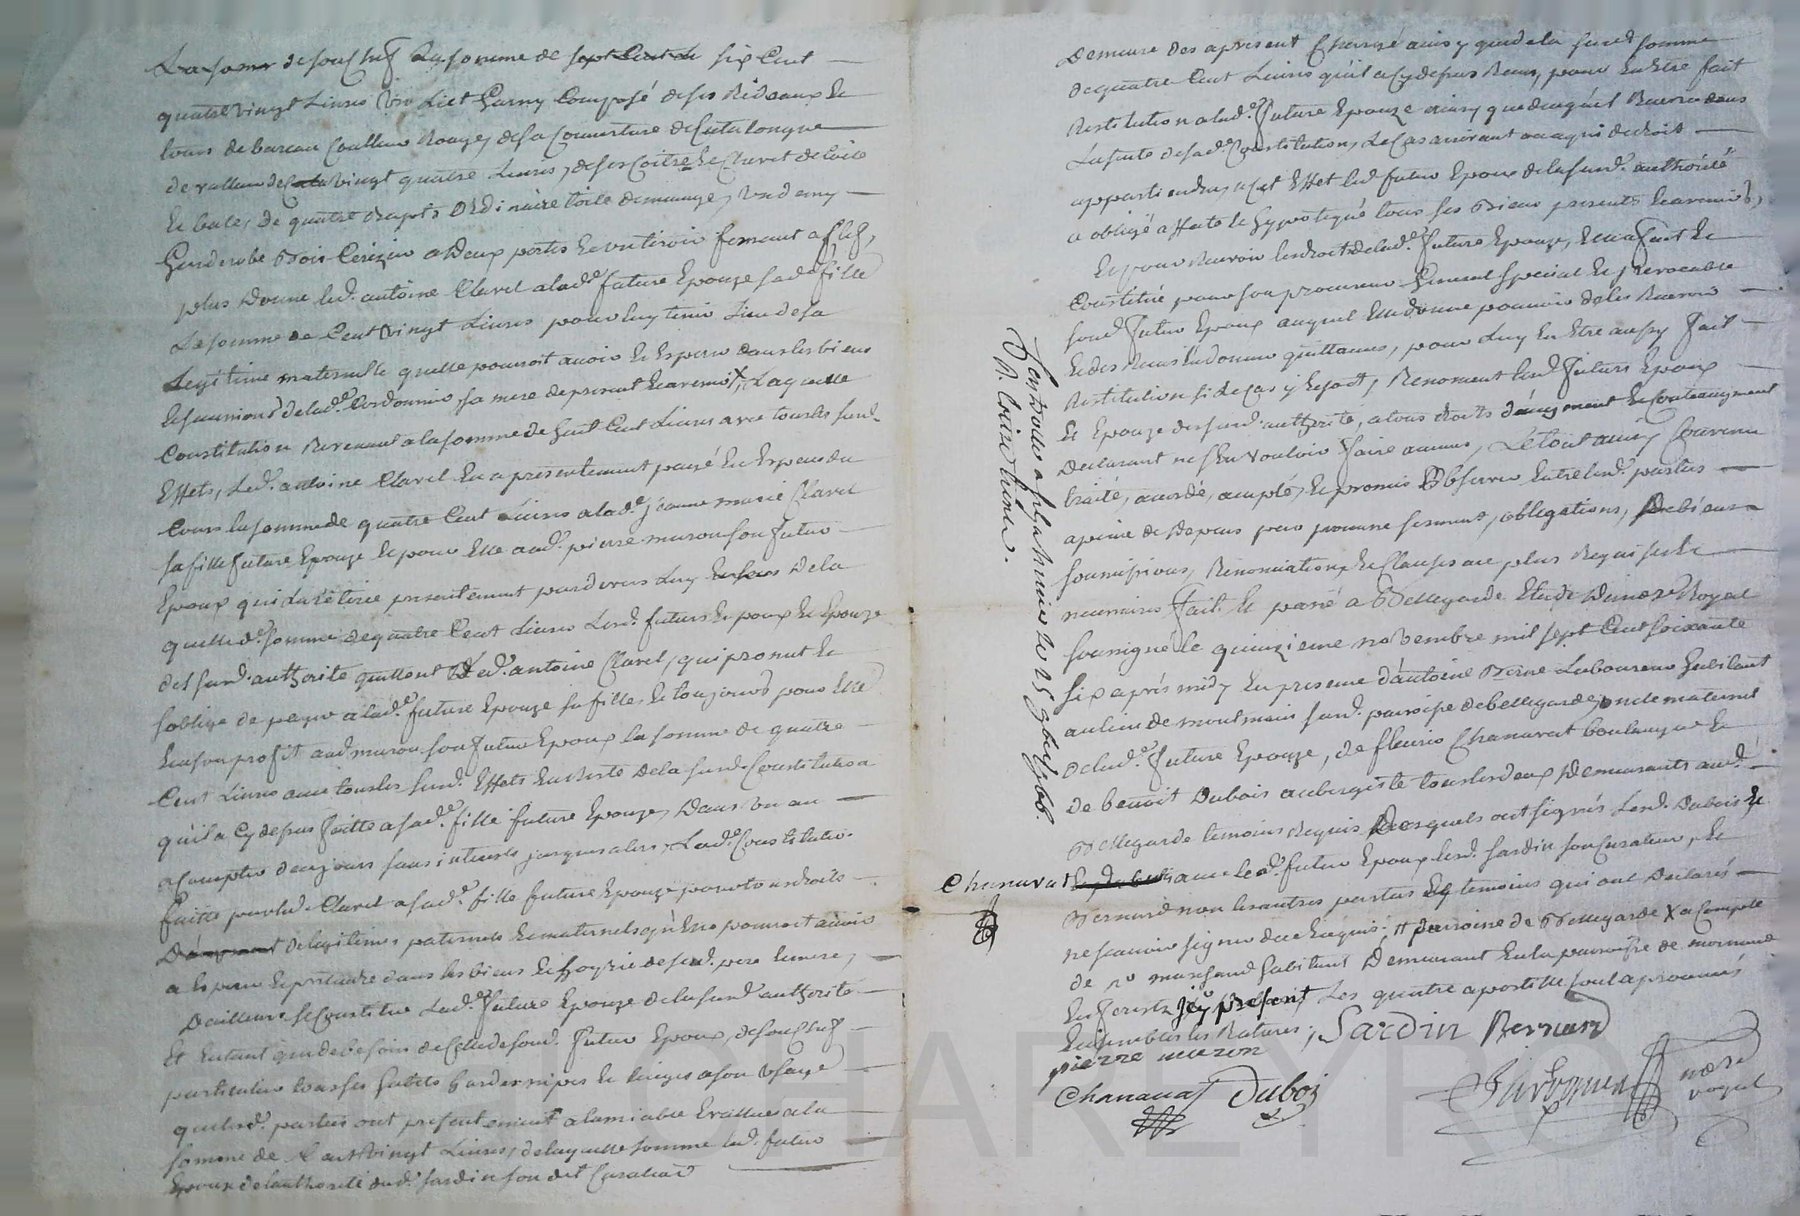 La somme de son chef La somme de sept Cent six Cent
quatre vingt Livres Un Lict Garny Composé de ses Rideaux Et
tours de Couleur Rouge, de sa Couverture de Catalongne
de valleur de vingt quatre Livres, de ses Coitre Et Chevet de toile
Et bale, de quatre draps Ordinaire toile de menage, Un demy
Garderobe Bois Cerizier a Deux portes Et un tiroir fermant a clef,
plus Donne led. antoine Clavel a lad.e future Epouze sad.e fille
La somme de Cent vingt Livres pour luy tenir Lieu de sa
Legitime maternelle quelle pourroit avoir Et Esperer dans les biens
de lad.e sa mere de present Et avenir, Laquelle
Constitution Revenant a la somme de huit Cent Livres avec tous les susd.
Effets, Led. antoine Clavel En a presentement payé En Especes du
Cours la somme de quatre Cent Livres a lad.e jeanne marie Clavel
sa fille future Epouze Et pour Elle aud. pierre muron son futur
Epoux qui La retirée presentement pardevers Luy de la
quelle d.e somme de quatre Cent Livres Lesd. futurs Epoux Et Epouze
des susd. authorité quittent Led. antoine Clavel, qui promet Et
soblige de payer a lad.e future Epouze sa fille, Et toujours pour Elle
Et a son profit aud. muron son futur Epoux la somme de quatre
Cent Livres avec tous les susd. Effets En Reste de la susd. Constitution
quil a Cy dessus faitte a sad.e fille future Epouze, Dans Un an
a Compter daujourd. sans interets jusques alors, Lad.e Constitution
faitte par led. Clavel a sad.e fille future Epouze pour tous droits
de legitimes paternels Et maternels qu'Elle pourroit avoir
a Esperer Et pretendre dans les biens Et hoyrie de sesd. pere Et mere,
Dailleurs se Constitue Lad.e future Epouze de la susd. authorité
Et Entant que de besoin de Celle de sond. futur Epoux, de son Chef
particulier tous ses habits hardes nipes Et linges a son Usage
que lesd. parties ont presentement a lamiable Evallués a la
somme de Cent vingt Livres, de laquelle somme led. futur
Epoux de lauthorité dud. sardin son dit Curateur
Demeure des apresent Chargé ainsy que de la susd. somme
de quatre Cent Livres qu'il a Cy dessus Receu, pour En Etre fait
Restitution a lad.e future Epouze ainsy que de ce qu'il Recevra dans
La suite de sad.e Constitution, Le Cas arrivant ou a qui de droit
appartiendra, a Cet Effet led. futur Epoux de la susd. authorité
a obligé affecté Et hypotequé tous ses Biens presents Et avenirs,
Et pour Recevoir les droits de lad.e future Epouze, Elle a fait Et
Constitué pour son procureur General Special Et jrrevocable
sond. futur Epoux auquel Elle donne pouvoir de les Recevoir
Et des Receus En donner quittances, pour Luy En Etre aussy fait
Restitution si le Cas y Echoit, Renoncent Lesd. futurs Epoux
Et Epouze des susd. authorité, a tous droits d'augment Et Contraugment
Declarant nen vouloir faire aucuns, Le tout ainsy Convenu
traité, accordé, accepté, Et promis Observer Entre lesd. parties
a peine de Depens par promesse serment, obligations, De biens
soumissions, Renonciations, Et Clauses au plus Requises Et
necessaires fait Et passé a Bellegarde Etude Du no.re Royal
soussigné le quinzieme novembre mil sept Cent soixante
six après midy En presence d'antoine Laboureur habitant
au lieu de susd. paroisse de bellegarde, oncle maternel
de lad.e future Epouze, de fleury Chanavat boulanger Et
de benoit Dubois aubergiste tous les deux Demeurants aud.
Bellegarde temoins Requis Desquels ont signés Lesd. Dubois Et
Chanavat avec led. futur Epoux led. sardin son Curateur, Et
Bernard non les autres parties Et temoins qui ont Declarés
ne scavoir signer de ce Enquis; # paroisse de Bellegarde X a Compte
de marchand habitant Demeurant En la paroisse de mornand
En forests jcy present Les quatre apostille sont aprouvés
Ensembles les Ratures, Sardin Bernard
pierre muron
Chanavat Dubois
nore
royal